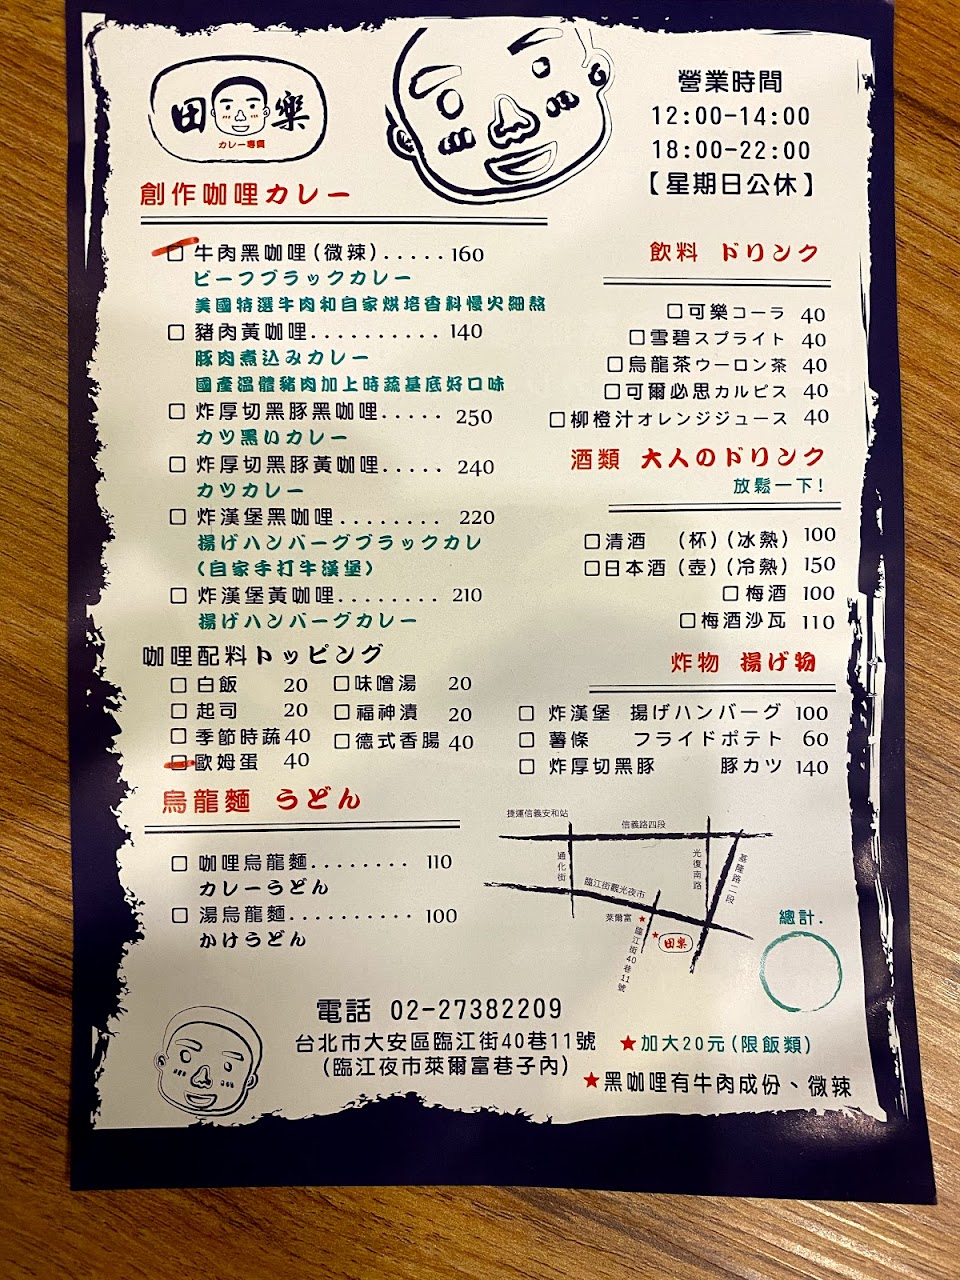 田樂
カレー専門
営業時間
12:00-14:00
18:00-22:00
【星期日公休】
創作咖哩カレー
□ 牛肉黑咖哩(微辣).....160
ビーフブラックカレー
美國特選牛肉和自家烘培香料慢火細熬
□ 豬肉黃咖哩..........140
豚肉煮込みカレー
國產溫體豬肉加上時蔬基底好口味
□ 炸厚切黑豚黑咖哩..... 250
カツ黑いカレー
□ 炸厚切黑豚黃咖哩..... 240
カツカレー
□ 炸漢堡黑咖哩........ 220
揚げハンバーグブラックカレ
(自家手打牛漢堡)
□ 炸漢堡黃咖哩........ 210
揚げハンバーグカレー
咖哩配料トッピング
□ 白飯 20 □味噌湯 20
□ 起司 20 □福神漬 20
□ 季節時蔬40 □德式香腸 40
□歐姆蛋 40
烏龍麵 うどん
□ 咖哩烏龍麵........ 110
カレーうどん
□ 湯烏龍麵.......... 100
かけうどん
飲料 ドリンク
□可樂コーラ 40
□雪碧スプライト 40
□烏龍茶ウーロン茶 40
□可爾必思カルピス 40
□柳橙汁オレンジジュース 40
酒類 大人のドリンク
放鬆一下!
□清酒 (杯)(冰熱) 100
□日本酒(壺)(冷熱) 150
□梅酒 100
□梅酒沙瓦 110
炸物 揚げ物
□ 炸漢堡 揚げハンバーグ 100
□ 薯條 フライドポテト 60
□ 炸厚切黑豚 豚カツ 140
捷運信義安和站
信義路四段
通化街
光復南路
基隆路二段
臨江街觀光夜市
萊爾富
田樂
臨江街40巷11號
總計.
電話 02-27382209
台北市大安區臨江街40巷11號
(臨江夜市萊爾富巷子內)
★加大20元(限飯類)
★黑咖哩有牛肉成份、微辣